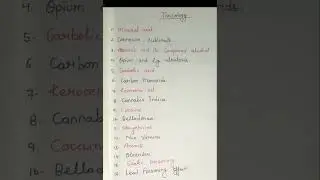 Toxicology
1. Mineral acid
2. Corrosive Sublimate
3. Arsenic and its Compounds alcohol
4. Opium and its alkaloids
5. Carbolic acid
6. Carbon Monoxide
7. Kerosene oil
8. Cannabis Indica
9. Cocaine
10. Belladonna
11. Strychnine
12. Nux Vomica
13.
14. Oleander
15. Snake Poisoning
16. Lead Poisoning effect
4. Opium
5. Carbolic
6. Carbon
7. Kerosene
8. Cannabis
9. Cocaine
10. Bellado